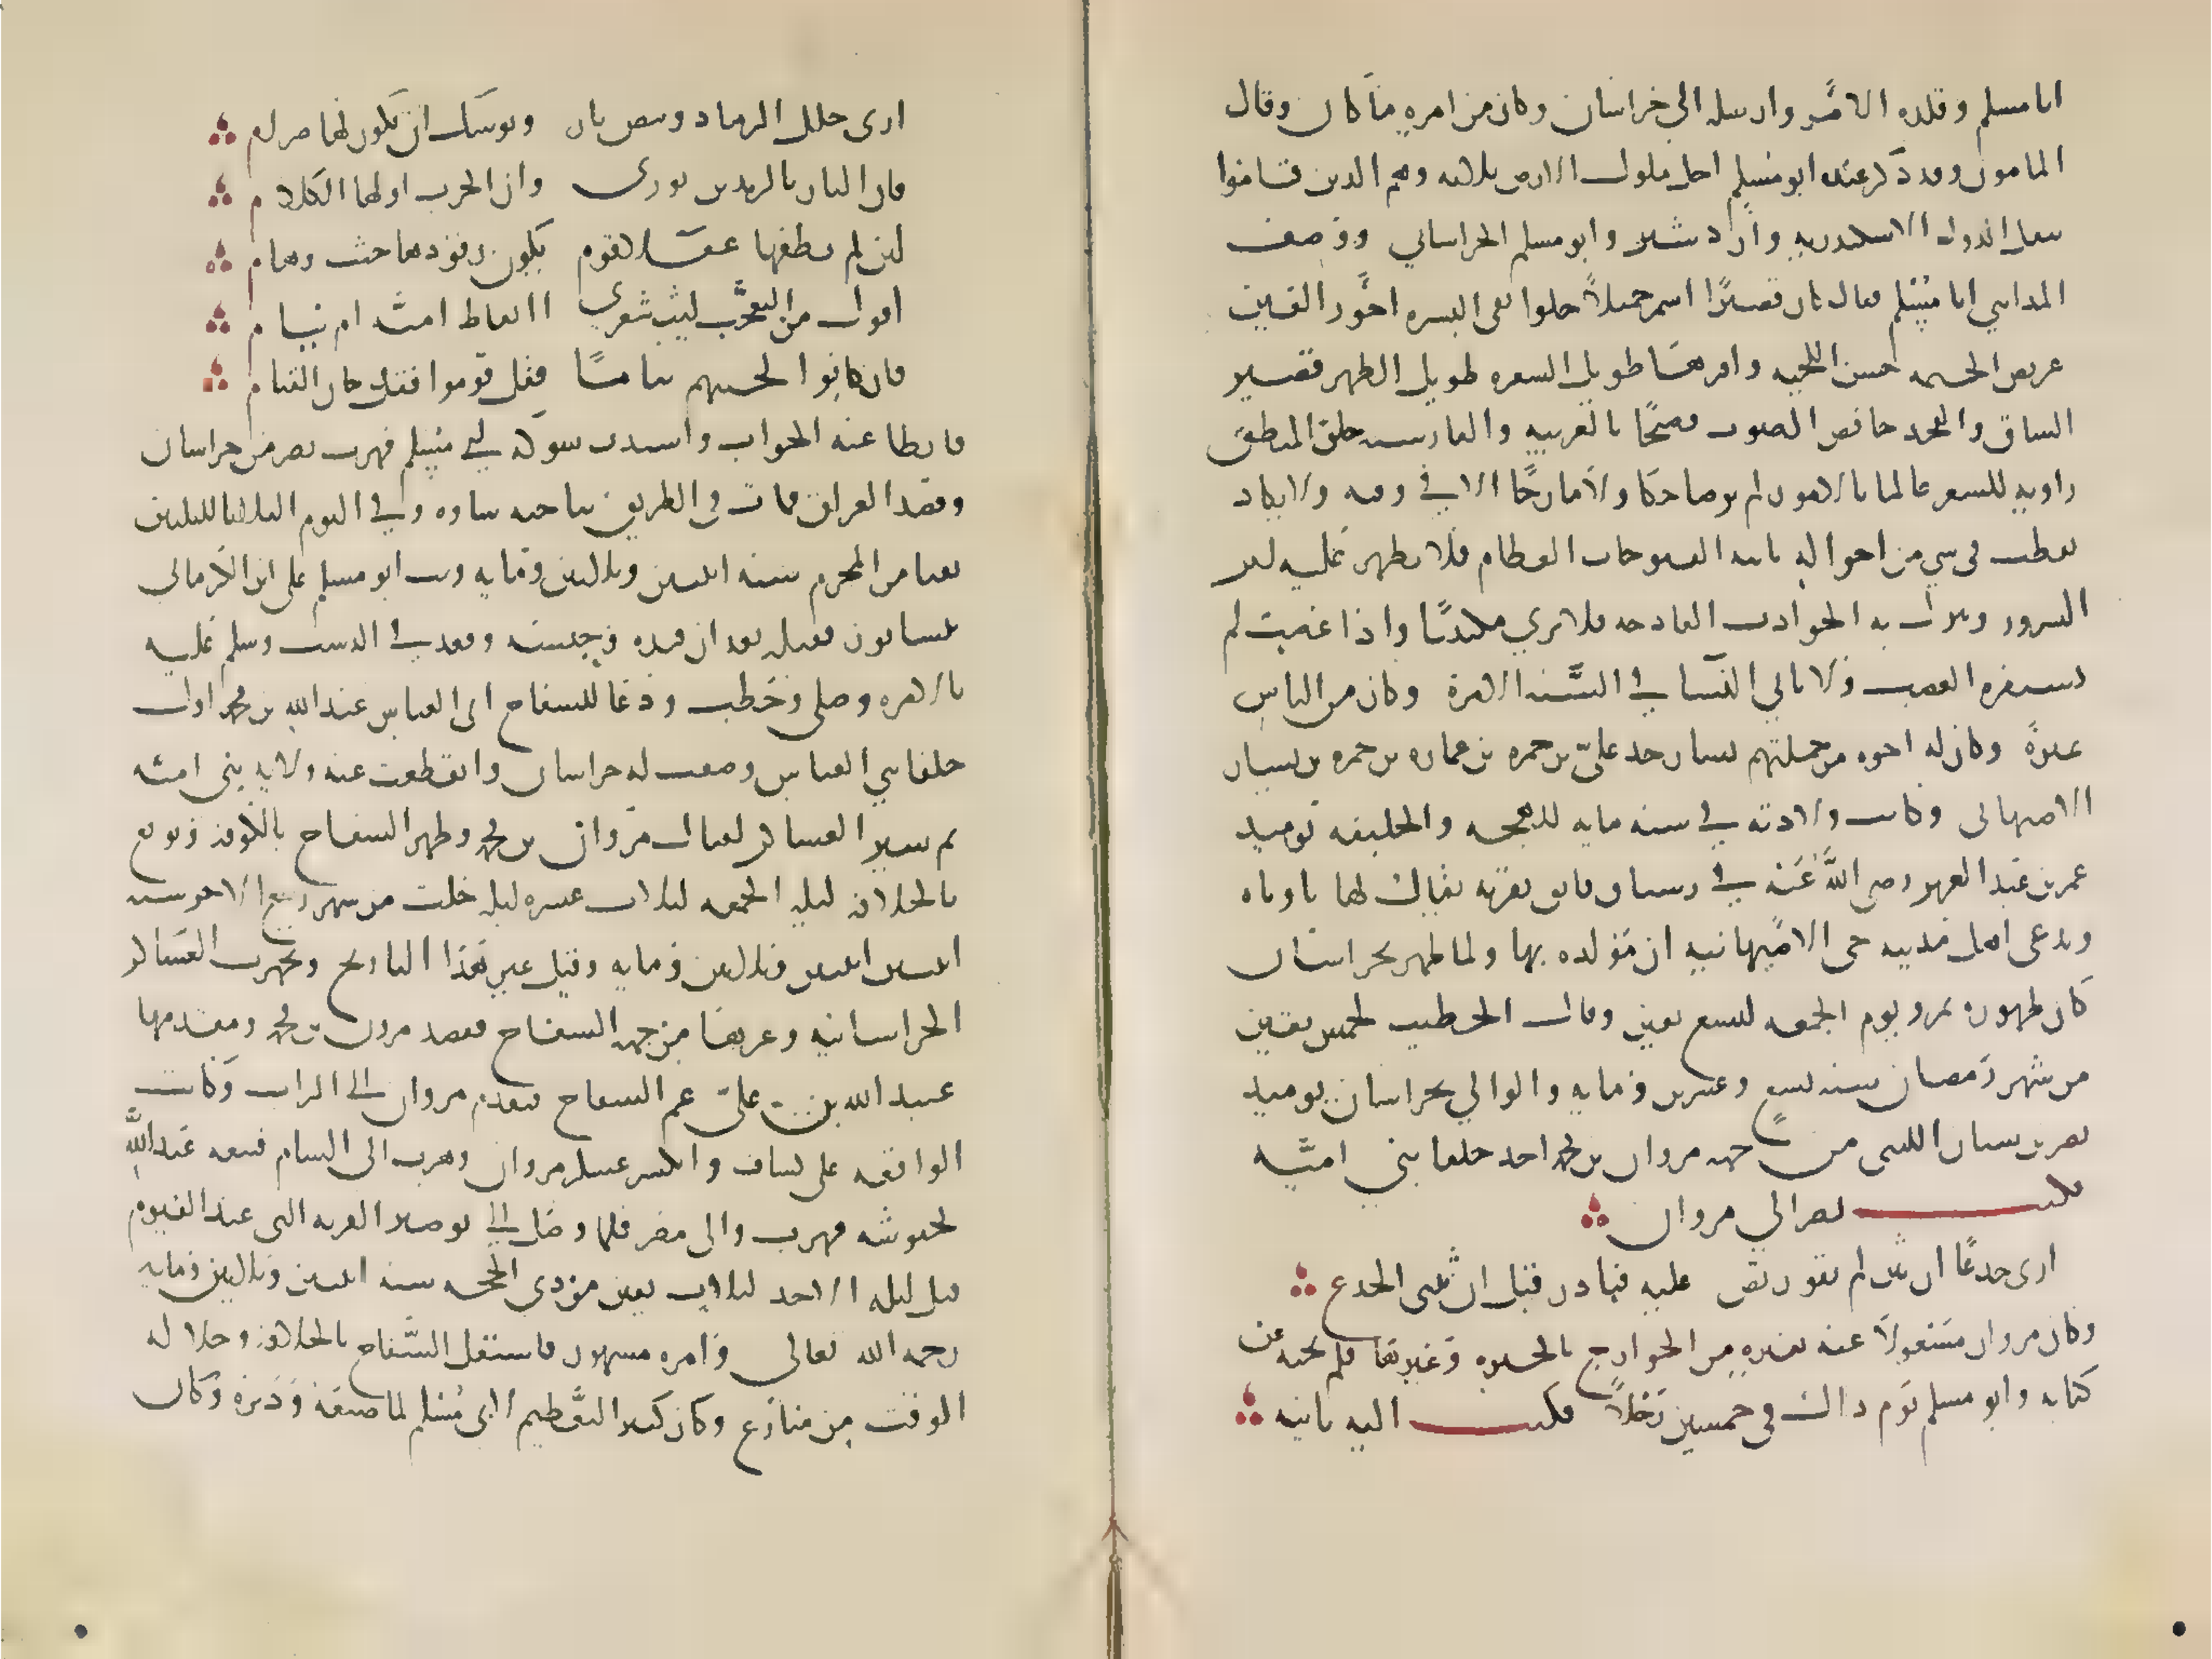 ابا مسلم وقلده الامر وارسله الى خراسان وكان من امره ما كان وقال
المامون وقد ذكر عنده ابو مسلم اجل ملوك الارض ثلاثة وهم الذين قاموا
بنقل الدول الاسكندر وازدشير وابو مسلم الخراساني ووصف
المدايني ابا مسلم فقال كان قصيرا اسمر جميلا حلوا نقي البشره احور العين
عريض الجبهه حسن اللحيه وافرها طويل الشعره طويل الظهر قصير
الساق والفخد خافض الصوت فصيحا بالعربيه والفارسيه حلو المنطق
راويه للشعر عالما بالامور لم ير ضاحكا ولا مازحا الا في وقته ولا يكاد
يقطب في شي من احواله تاتيه الفتوحات العظام فلا يظهر عليه اثر
السرور وتنزل به الحوادث الفادحه فلا يرى مكتئبا واذا غضب لم
يستفزه الغضب ولا ياتي النسا في السنه الا مرة وكان من اشد الناس
غيرة وكان له اخوه من جملتهم يسار جد علي بن حمزه بن عماره بن حمزه بن يسار
الاصبهاني وكانت ولادته في سنه مايه للهجره والخليفه يوميذ
عمر بن عبد العزيز رضي الله عنه في رستاق فاتق بقريه يقال لها ناوانه
ويدعي اهل مدينه جي الاصبهانيه ان مولده بها ولما ظهر بخراسان
كان ظهوره بمرو يوم الجمعه لتسع بقين وقال الخطيب لخمس بقين
من شهر رمضان سنه تسع وعشرين ومايه والوالي بخراسان يوميذ
نصر بن سيار الليثي من جهه مروان بن محمد احد خلفا بني اميه
فكتب نصر الى مروان
ارى جدعا ان يثن لم يقو ريض عليه فبادر قبل ان يثني الجدع
وكان مروان مشغولا عنه بغيره من الخوارج بالجزيره وغيرها فلم يجبه عن
كتابه وابو مسلم يوم ذاك في خمسين رجلا فكتب اليه ثانيه
ارى خلل الرماد وميض نار ويوشك ان يكون لها ضرام
فان النار بالزندين تورى وان الحرب اولها الكلام
لئن لم يطفها عقلا قوم يكون وقودها جثث وهام
اقول من التعجب ليت شعري اايقاظ اميه ام نيام
فان كانوا لحينهم نياما فقل قوموا فقد حان القيام
فابطا عنه الجواب واشتدت شوكه ابي مسلم فهرب نصر من خراسان
وقصد العراق فمات في الطريق بناحيه ساوه وفي اليوم الثلاثا لليلتين
بقيتا من المحرم سنه اثنتين وثلاثين ومايه وثب ابو مسلم على ابن الكرماني
بنيسابور فقتله بعد ان قيده وحبسه وقعد في الدست وسلم عليه
بالامره وصلى وخطب ودعا للسفاح ابي العباس عبد الله بن محمد اول
خلفا بني العباس وصفت له خراسان وانقطعت عنه ولايه بني اميه
ثم سير العساكر لقتال مروان بن محمد وظهر السفاح بالكوفه وبويع
بالخلافه ليله الجمعه لثلاث عشره ليله خلت من شهر ربيع الاخر سنه
اثنتين وثلاثين ومايه وقيل غير هذا التاريخ وتجهزت العساكر
الخراسانيه وغيرها من جهه السفاح لقصد مروان بن محمد ومقدمها
عبد الله بن علي عم السفاح فتقدم مروان الى الزاب وكانت
الواقعه على كشاف وانكسر عسكر مروان وهرب الى الشام فتبعه عبد الله
بجيوشه فهرب الى مصر فلما وصل الى بوصير القريه التي عند الفيوم
قتل ليله الاحد لثلاث بقين من ذي الحجه سنه اثنتين وثلاثين ومايه
رحمه الله تعالى وامره مشهور فاستقل السفاح بالخلافه وخلا له
الوقت من منازع وكان كثير التعظيم لابي مسلم لما صنعه ودبره وكان